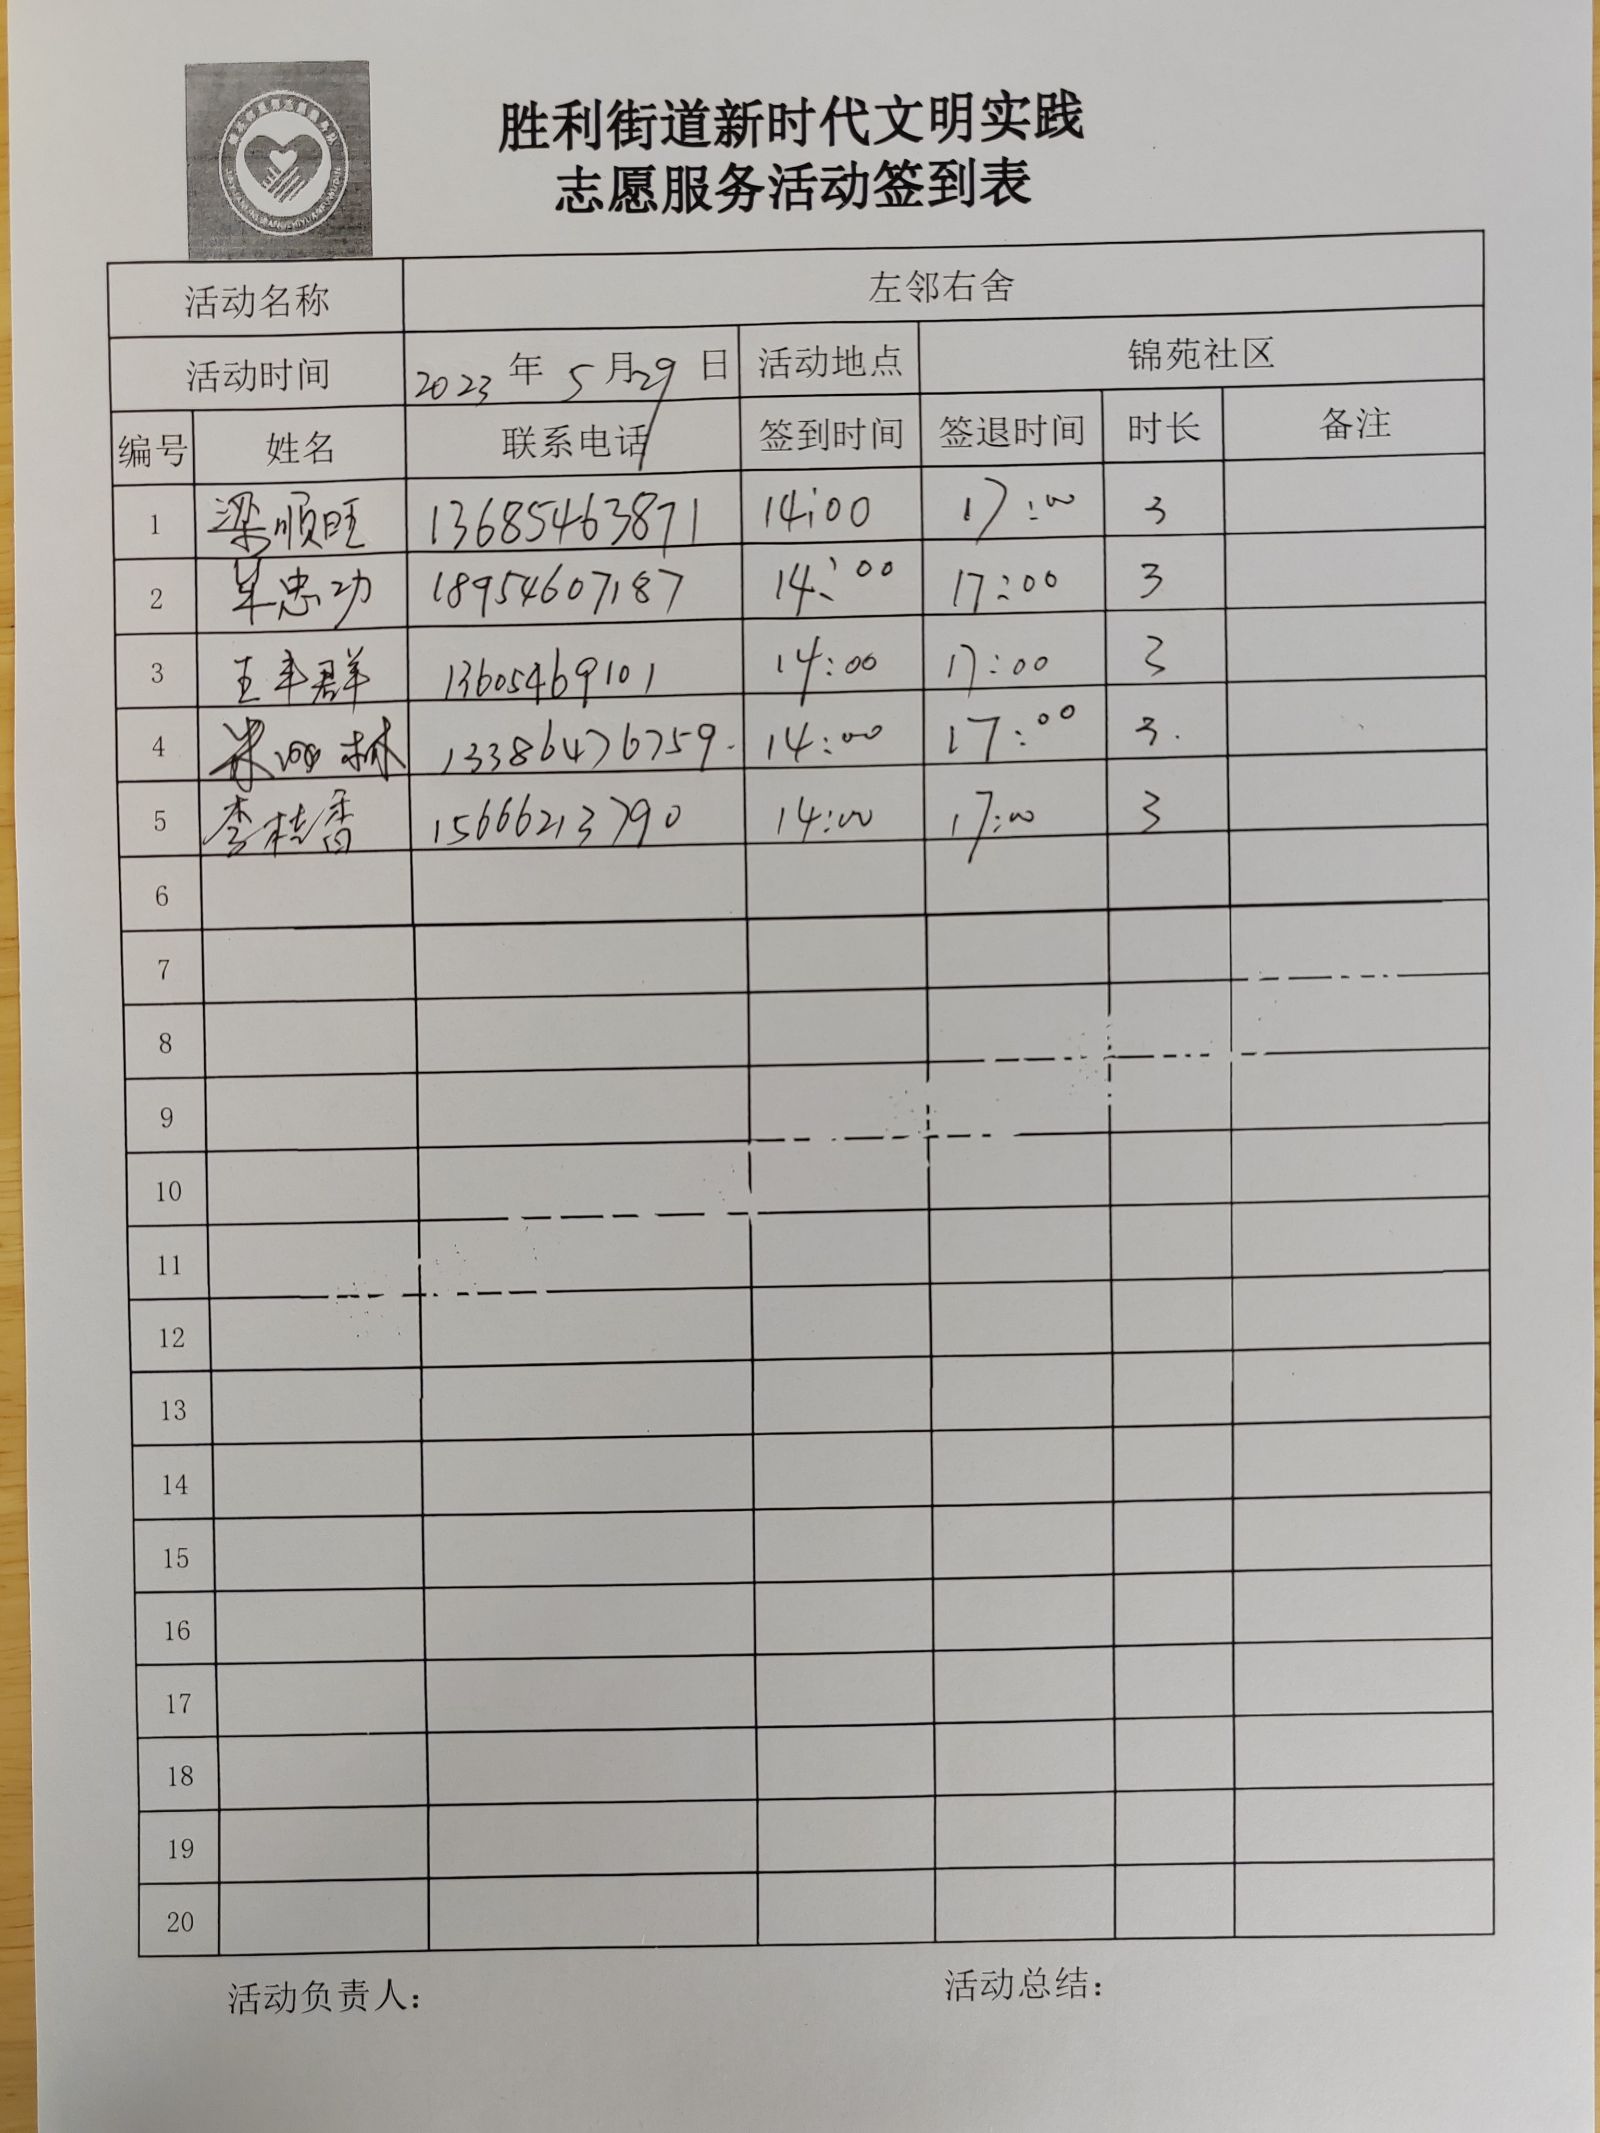 胜利街道新时代文明实践
志愿服务活动签到表
活动名称 左邻右舍
活动时间 2023年5月29日 活动地点 锦苑社区
编号 姓名 联系电话 签到时间 签退时间 时长 备注
1 梁顺旺 13685463871 14:00 17:00 3
2 牟忠功 18954607187 14:00 17:00 3
3 王丰群 13605469101 14:00 17:00 3
4 13386476759. 14:00 17:00 3.
5 李桂香 15666213790 14:00 17:00 3
6
7
8
9
10
11
12
13
14
15
16
17
18
19
20
活动负责人： 活动总结：